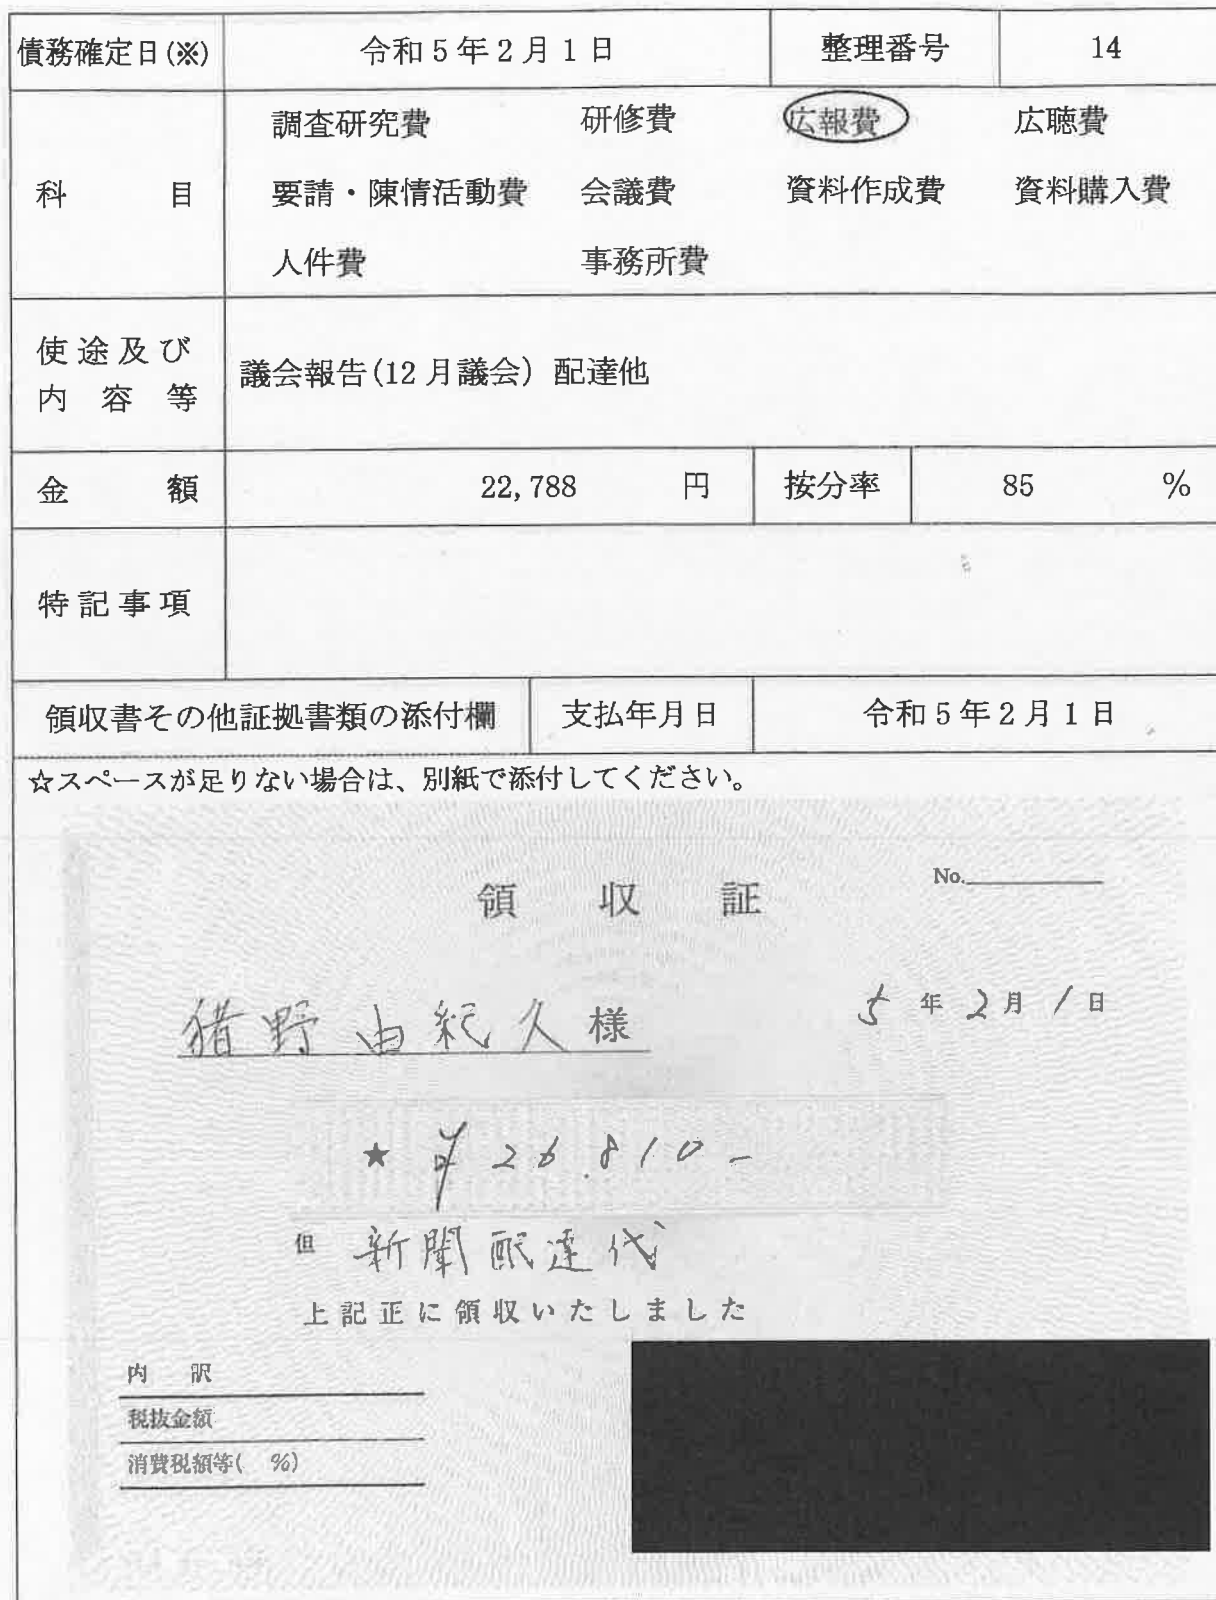 債務確定日(※) 令和5年2月1日 整理番号 14
科目 調査研究費 研修費 広報費 広聴費
要請・陳情活動費 会議費 資料作成費 資料購入費
人件費 事務所費
使途及び内容等 議会報告(12月議会) 配達他
金額 22,788 円 按分率 85 %
特記事項
領収書その他証拠書類の添付欄 支払年月日 令和5年2月1日
☆スペースが足りない場合は、別紙で添付してください。
領収証 No.
猪野由紀久様 5年2月1日
★ ¥26.810-
但 新聞配達代
上記正に領収いたしました
内訳
税抜金額
消費税額等( %)